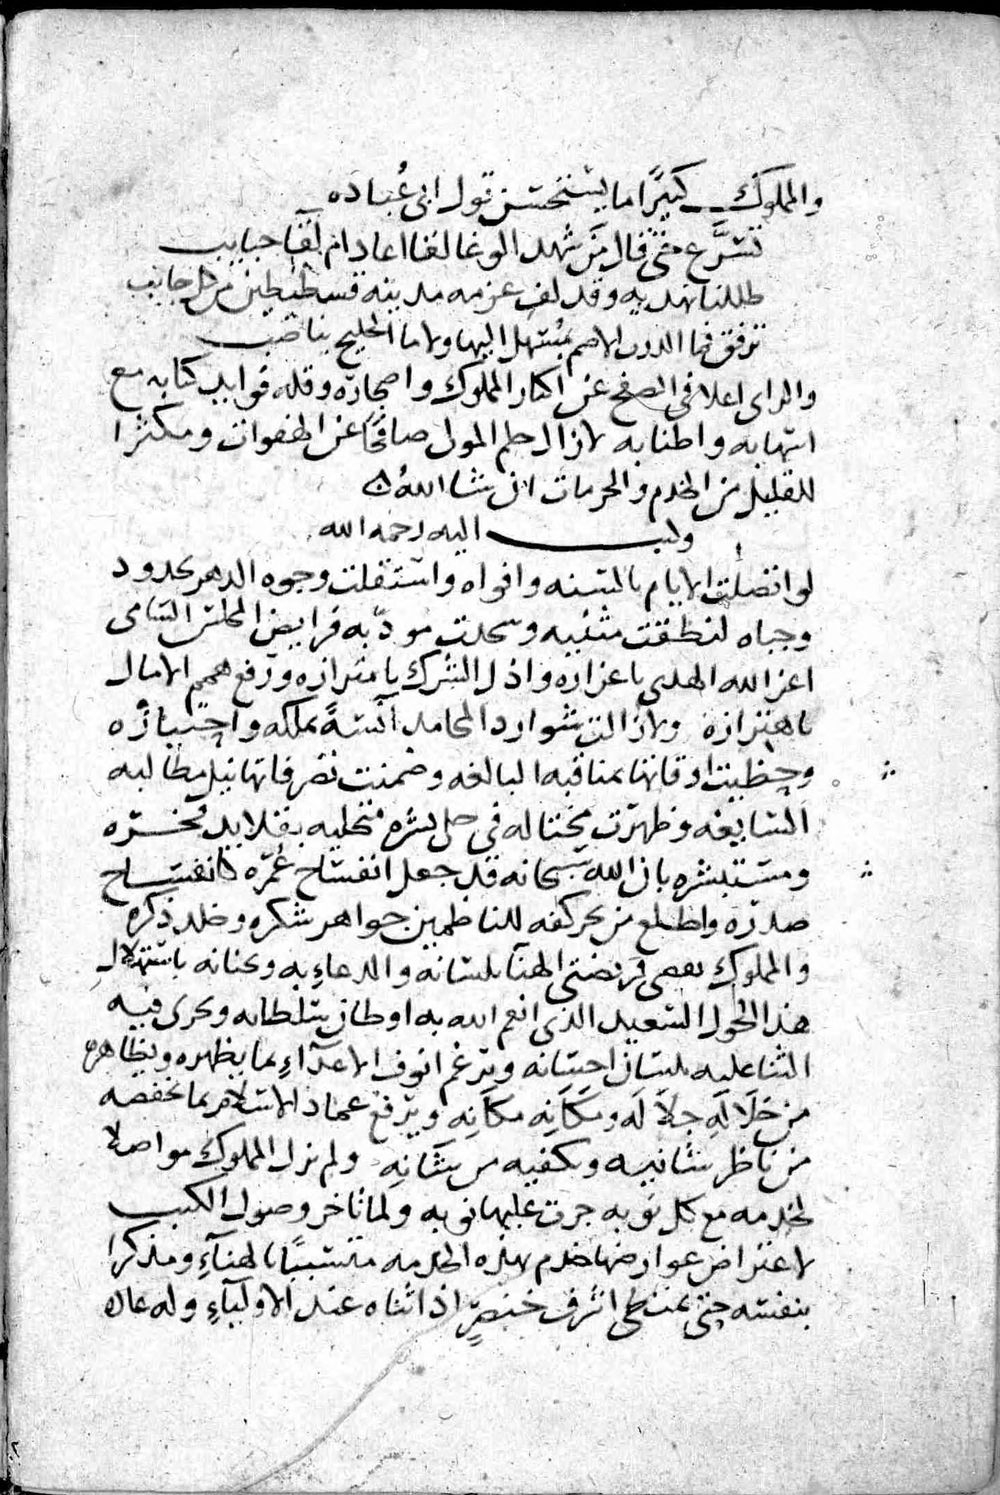 والمملوك كثيرًا ما يستحسن قول ابى عُباده
تسَرَّع حتى قال من شهد الوغا لقا اعاد ام لقا حبايب
طللنا نهديه وقد لف عزمه مدينه قسطنطين من كل جانب
ترفق فما الدرب الاصم بمسهل اليها ولا ما الخليج بناضب
والراى اعلا فى الصفح عن اكثار المملوك واضجاره وقله فوايد كتابه مع
اسهابه واطنابه لا زال حلم المولى صافحًا عن الهفوات ومكثرا
للقليل من الخدم والحرمات ان شا الله
وكتب اليه رحمه الله
لو اتصلت الايام بالسنه وافواه واستقلت وجوه الدهر بخدود
وجباه لنطقت مثنيه وسجدت مودّيه فرايض المجلس السامى
اعز الله الهدى باعزازه واذل الشرك بابتزازه ورفع همم الامال
باهتزازه ولا زالت شوارد المحامد آنسةً بملكه واجتيازه
وحظيت اوقاتها بمناقبه البالغه وضمنت تصرفاتها نيل مطالبه
السايغه وظهرت مختاله فى حلى بشره متحليه بقلايد فخره
ومستبشره بان الله سبحانه قد جعل انفساح عُمره كانفساح
صدره واطلع من بحر كفه للناظمين جواهر شكره وخلد ذكره
والمملوك يقضى فريضتى الهنا بلسانه والدعاء به وبجنانه باستهلال
هذا الحول السعيد الذى انعم الله به اوطان سلطانه وجرى فيه
الثنا عليه بلسان احسانه وترغم انوف الاعدآءِ بما يظهره ويظاهره
من خلاله جلاله ومكانه مكانه ويرفع عماد الاسلام بما يخفضه
من ناظر شانيه ويكفيه من شانه ولم يزل المملوك مواصلا
لخدمه مع كل نوبه جرت عليها نوبه ولما تاخر وصول الكتب
لاعتراض عوارضها خدم بهذه الخدمه متسببًا بالهناءِ ومذكرا
بنفسه حتى يمت الى اشرف خنصرٍ اذا ثناه عند الاوليآءِ وله عاده